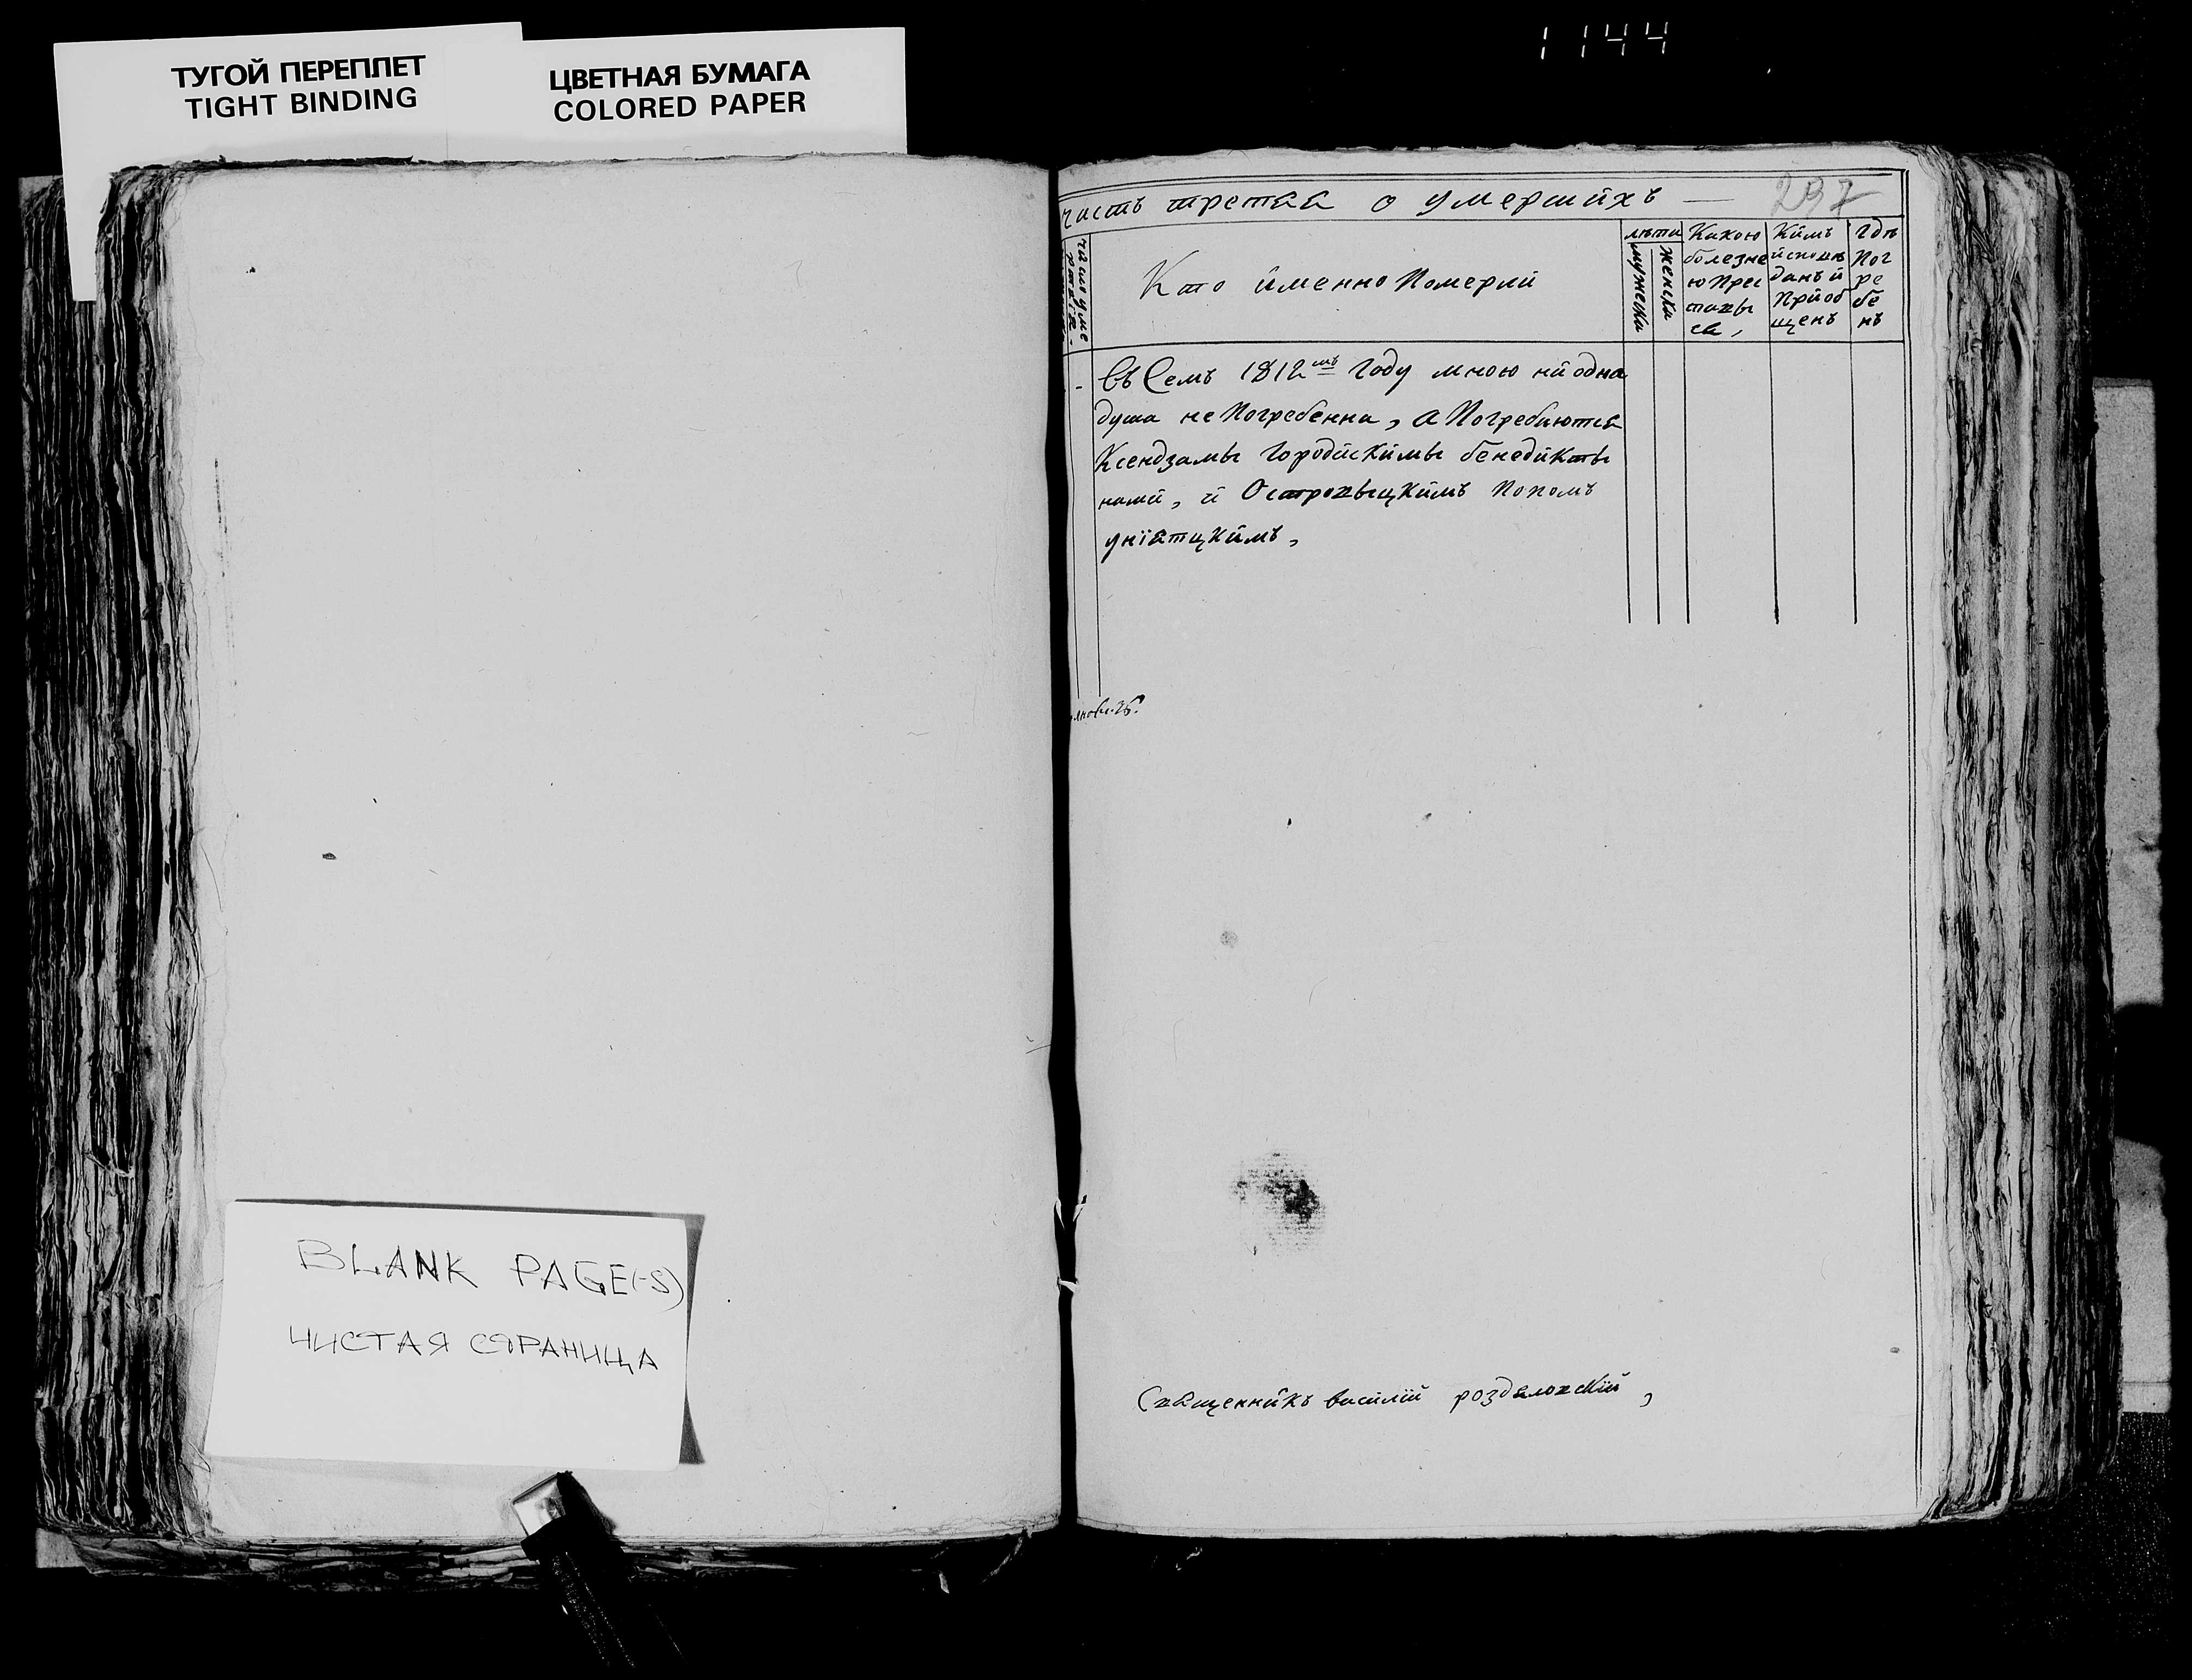 ТУГОЙ ПЕРЕПЛЕТ
TIGHT BINDING
ЦВЕТНАЯ БУМАГА
COLORED PAPER
1144
BLANK PAGE(-S)
ЧИСТАЯ СТРАНИЦА
часть третая о умершихъ —
число умерш
Кто именно Померлй
лѣта
мужеска
женска
Какою
болезне
ю Прес
тавы
ся,
Кимъ
исповѣ
данъ й
Приоб
щенъ
Гдѣ
Пог
ре
бе
нъ
Въ Семъ 1812мъ Году мною ни одна
душа не Погребенна, а Погребаются
Ксендзамы Городискимы бенедикты
нами, и Островыцкимъ Попомъ
унїятцкимъ,
Священникъ василий роздяловский,